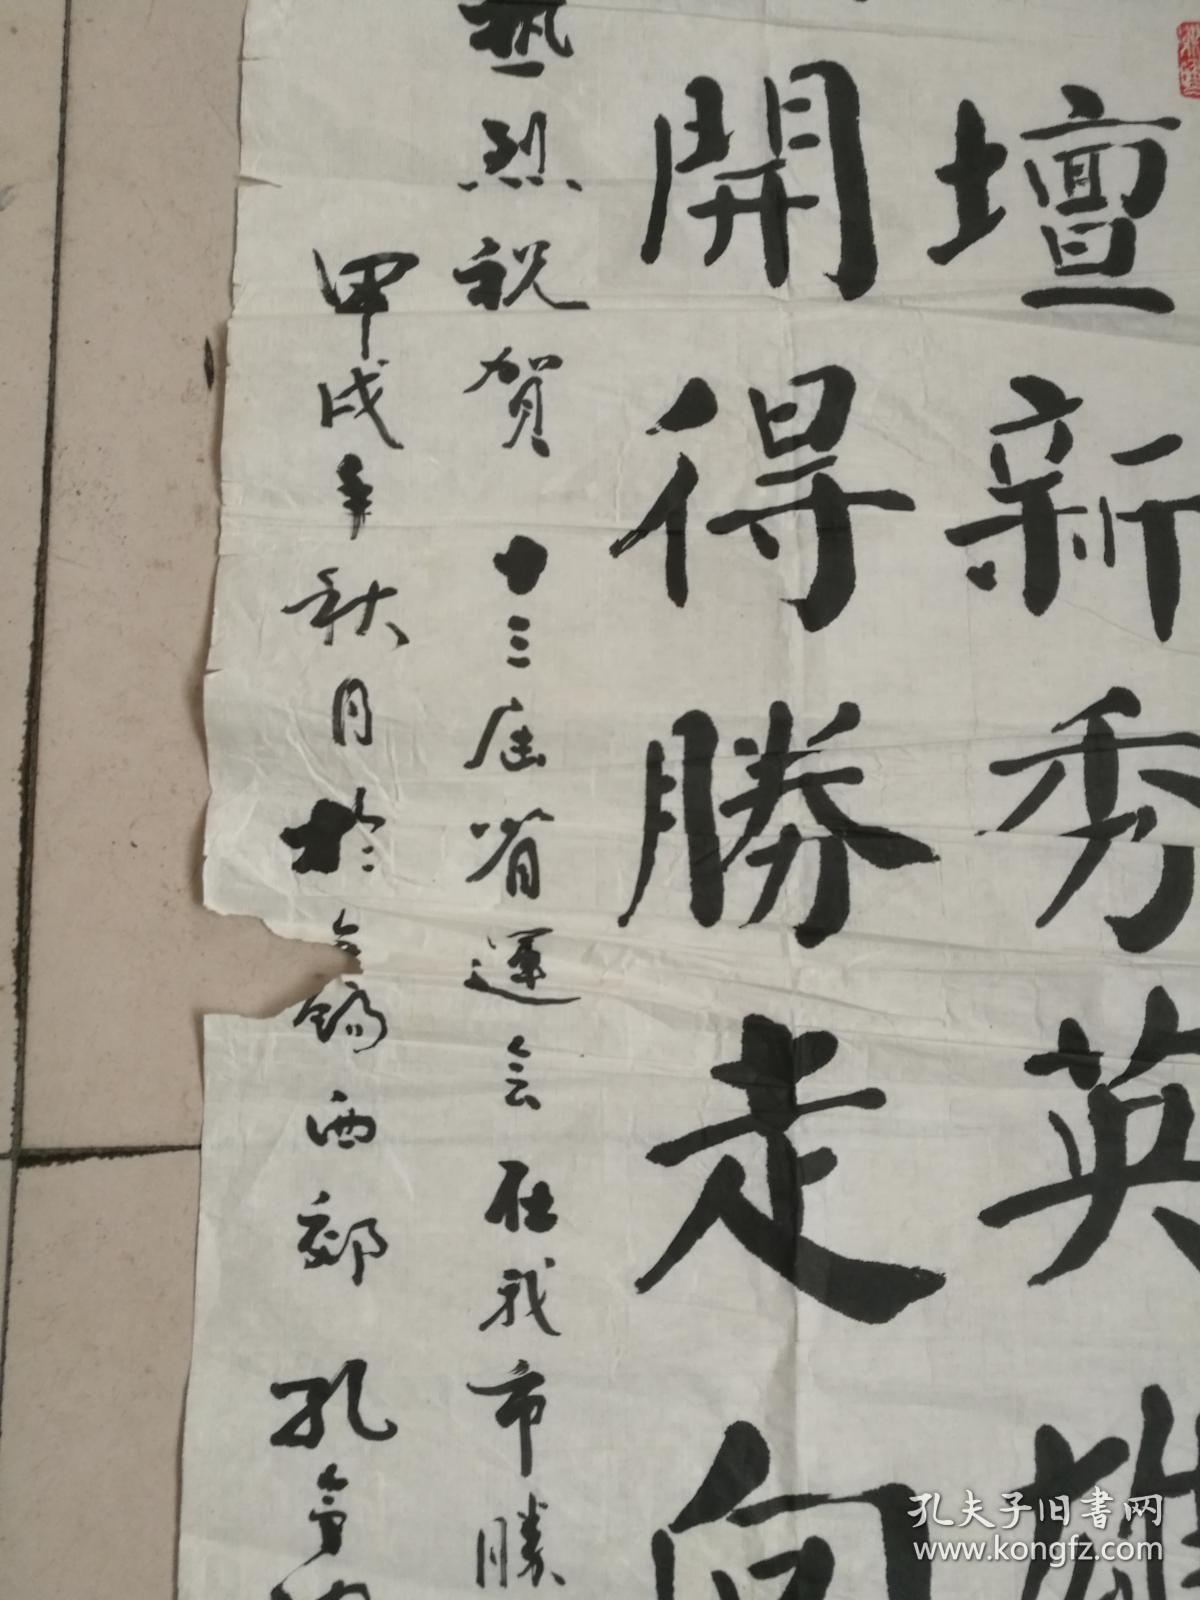 壇新秀英雄
開得勝走向
熱烈祝賀 十三届省運会在我市勝
甲戌年秋月於无錫西郊 孔
孔夫子旧书网
www.kongfz.com